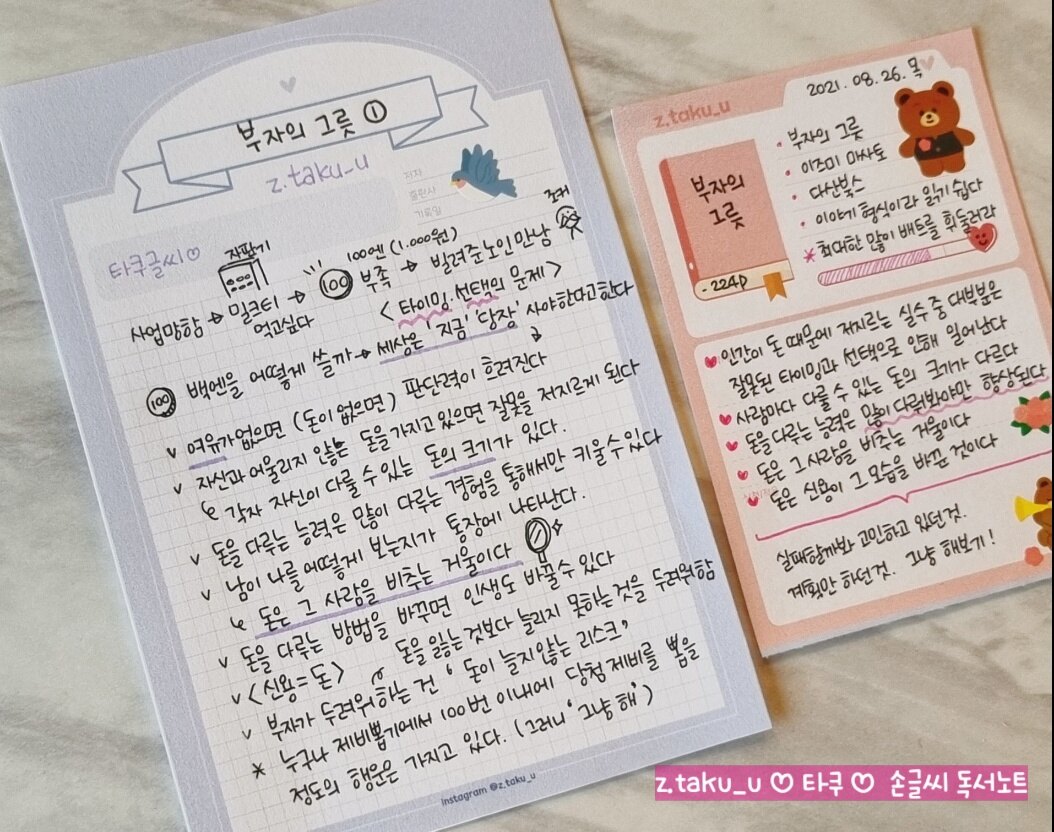 부자의 그릇 ①
z.taku_u
저자
출판사
기록일
타쿠글씨♡
자판기
100엔 (1.000원)
조커
사업망함 → 밀크티 → 100 부족 → 빌려준노인만남
먹고싶다
<타이밍.선택의 문제>
100 백엔을 어떻게 쓸까 → 세상은 '지금' '당장' 사야한다고한다
v 여유가없으면 (돈이 없으면) 판단력이 흐려진다
v 자신과어울리지 않는 돈을가지고있으면 잘못을 저지르게 된다
각자 자신이 다룰수 있는 돈의 크기가 있다.
v 돈을 다루는 능력은 많이 다루는 경험을 통해서만 키울수있다
v 남이 나를 어떻게 보는지가 통장에 나타난다.
돈은 그 사람을 비추는 거울이다
v 돈을 다루는 방법을 바꾸면 인생도 바꿀수있다
v <신용=돈>
돈을 잃는 것보다 늘리지 못하는것을 두려워함
v 부자가 두려워하는 건 '돈이 늘지않는 리스크'
* 누구나 제비뽑기에서 100번 이내에 당첨 제비를 뽑을
정도의 행운은 가지고 있다. (그러니 '그냥 해')
instagram @z_taku_u
z.taku_u
2021. 08. 26. 목
부자의
그릇
- 224p
• 부자의 그릇
• 이즈미 마사토
• 다산북스
• 이야기 형식이라 읽기 쉽다
* 최대한 많이 배트를 휘둘러라
인간이 돈 때문에 저지르는 실수 중 대부분은
잘못된 타이밍과 선택으로 인해 일어난다
사람마다 다룰 수 있는 돈의 크기가 다르다
돈을다루는 능력은 많이 다뤄봐야만 향상된다
돈은 그사람을 비추는 거울이다
돈은 신용이 그 모습을 바꾼 것이다
실패할까봐 고민하고 있던것.
계획만 하던것. 그냥 해보기!
z.taku_u ♡ 타쿠 ♡ 손글씨 독서노트